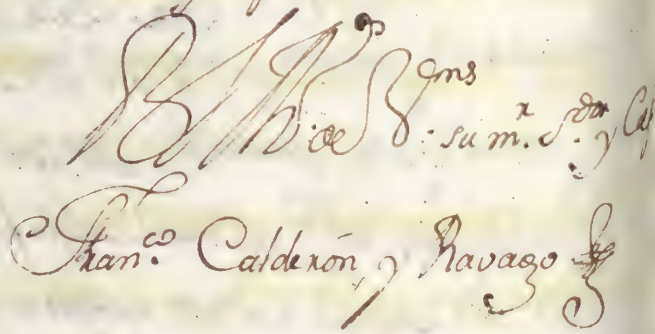 B L M de V. ms su m.r S.dor y Cap
Fran.co Calderón y Ravago